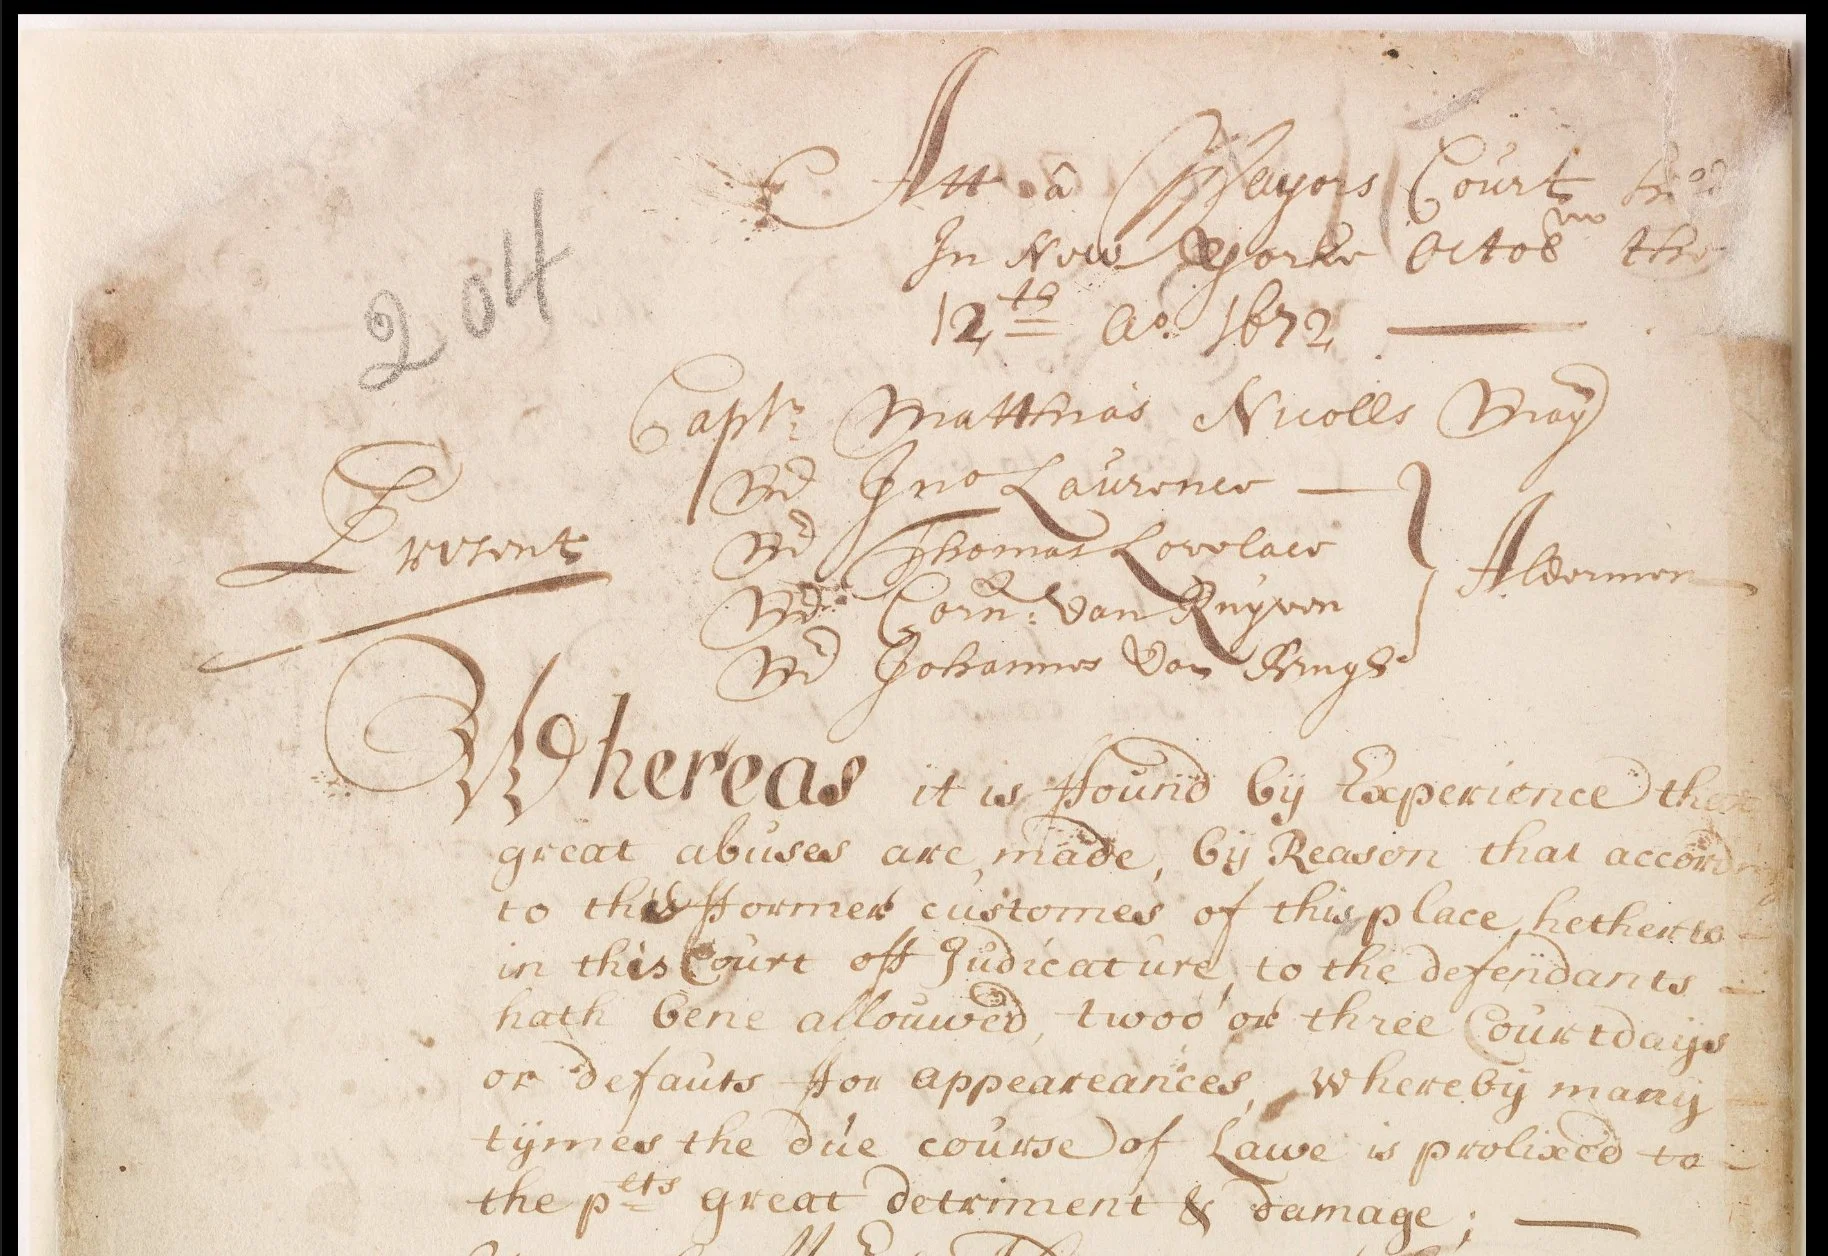 204
Att a Mayors Court
In New Yorke Octobr the
12th Ao. 1672
Capt. Matthias Nicolls May
Md Jno Laurence
Present Md Thomas Lovelace Aldermen
Md Corn: Van Ruyven
Md Johannes Van Brugh
Whereas it is ffound by Experience
great abuses are made, by Reason that
to the fformer customes of this place, hetherto
in this Court off Judicature, to the defendants
hath bene allouwed, twoo or three Courtdays
or defauts ffor appeareances, whereby many
tymes the due course of Lawe is prolixed to
the pets great detriment & damage;